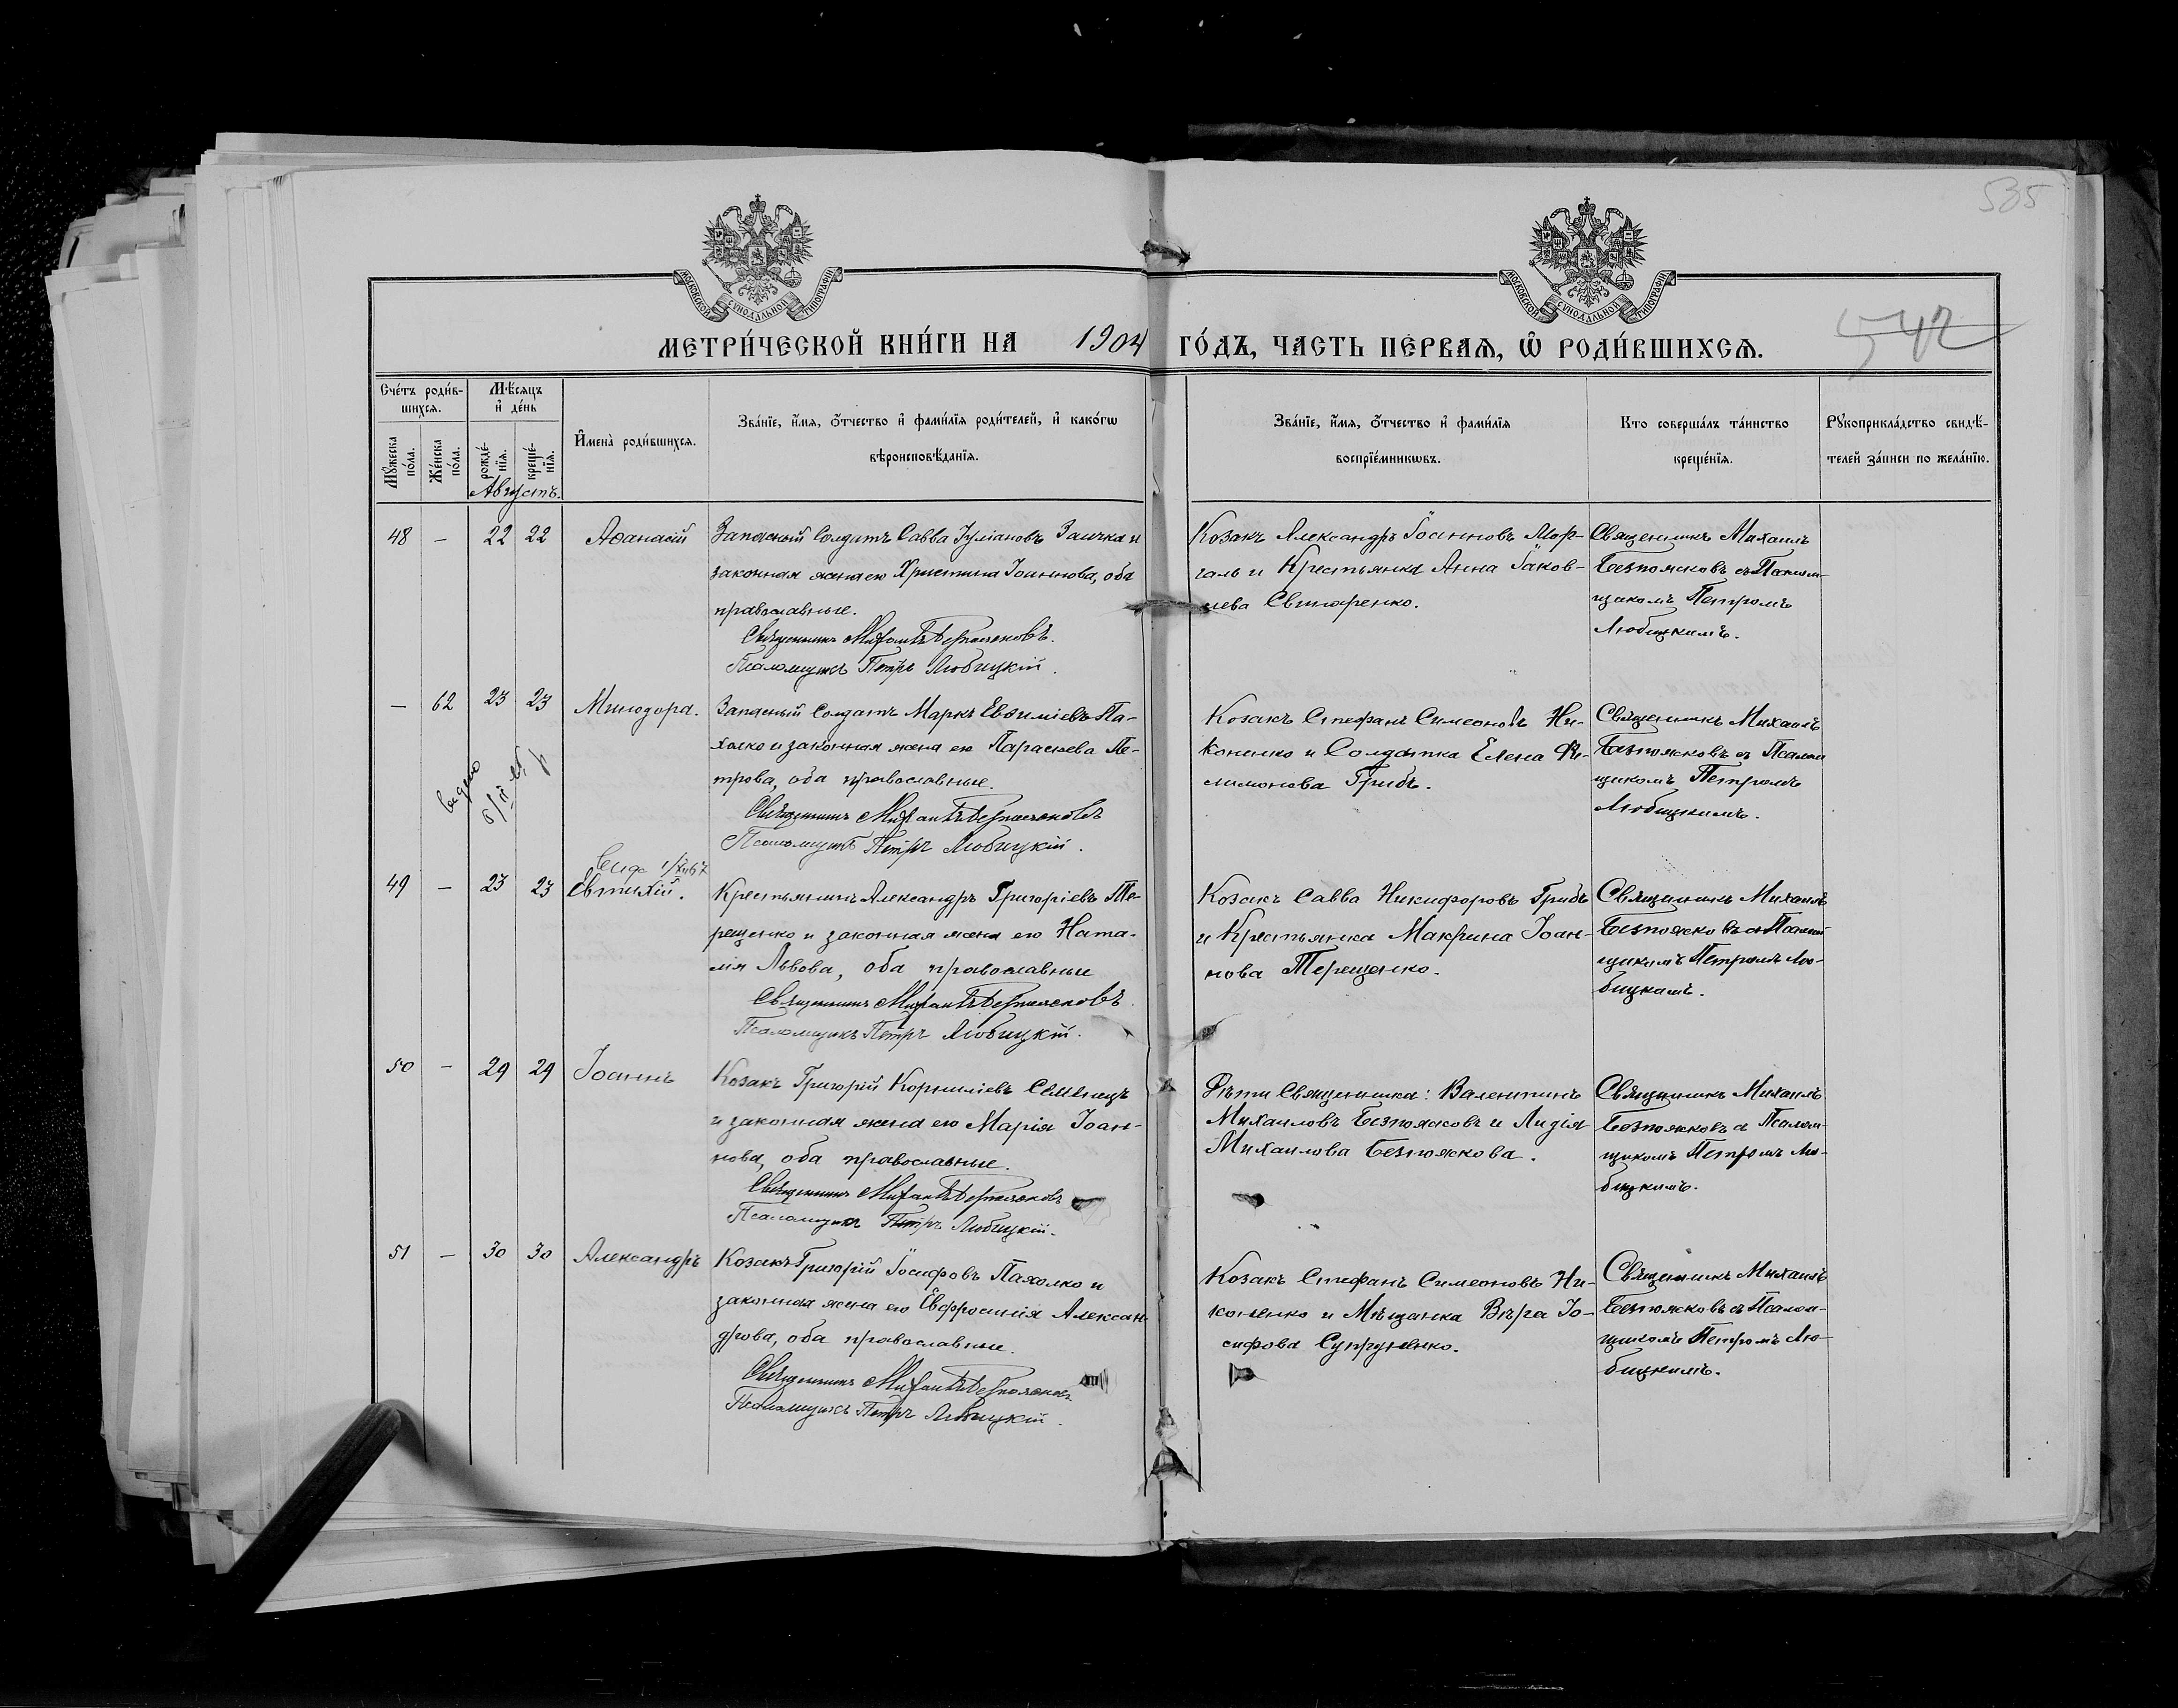 535
МОСКОВСКОЙ СѴНОДАЛЬНОЙ ТИПОГРАФІИ
МОСКОВСКОЙ СѴНОДАЛЬНОЙ ТИПОГРАФІИ
МЕТРИ́ЧЕСКОЙ КНИ́ГИ НА 1904 ГО́ДЪ, ЧАСТЬ ПЕ́РВАѦ, Ѡ҆ РОДИ́ВШИХСѦ.
542
Сче́тъ роди́в-
шихсѧ.
Мѣ́сѧцъ
и҆ де́нь
Мꙋ́жеска
по́ла.
Же́нска
по́ла.
рожде́-
нїѧ.
креще́-
нїѧ.
И҆мена̀ роди́вшихсѧ.
Зва́нїе, и҆́мѧ, ѻ҆́тчество и҆ фами́лїѧ роди́телей, и҆ како́гѡ
вѣроисповѣ́данїѧ.
Зва́нїе, и҆́мѧ, ѻ҆́тчество и҆ фами́лїѧ
воспрїе́мникѡвъ.
Кто̀ соверша́лъ та́инство
креще́нїѧ.
Рꙋкоприкла́дство свидѣ́-
телей за́писи по жела́нїю.
Августъ.
48 — 22 22 Аѳанасій
Запасный Солдатъ Савва Іуліановъ Заичка и
законная жена его Христина Іоаннова, оба
православные.
Священникъ Михаилъ Безпоясковъ.
Псаломщикъ Петръ Любицкій.
Козакъ Александръ Іоанновъ Мор-
галь и Крестьянка Анна Іаков-
лева Свинаренко.
Священникъ Михаилъ
Безпоясковъ съ Псалом-
щикомъ Петромъ
Любицкимъ.
— 62 23 23 Милодора.
Запасный Солдатъ Маркъ Евѳиміевъ Па-
холко и законная жена его Параскева Пе-
трова, оба православные.
Священникъ Михаилъ Безпоясковъ
Псаломщикъ Петръ Любицкій.
Козакъ Стефанъ Симеоновъ Ни-
коненко и Солдатка Елена Фи-
лимонова Грибъ.
Священникъ Михаилъ
Безпоясковъ съ Псалом
щикомъ Петромъ
Любицкимъ.
видано
49 — 23 23 Евтихій.
Крестьянинъ Александръ Григоріевъ Те-
рещенко и законная жена его Ната-
лія Львова, оба православные
Священникъ Михаилъ Безпоясковъ.
Псаломщикъ Петръ Любицкій.
Козакъ Савва Никифоровъ Грибъ
и Крестьянка Макрина Іоан-
нова Терещенко.
Священникъ Михаилъ
Безпоясковъ съ Псалом
щикомъ Петромъ Лю-
бицкимъ.
50 — 29 29 Іоаннъ
Козакъ Григорій Корниліевъ Семенецъ
и законная жена его Марія Іоан-
нова, оба православные.
Священникъ Михаилъ Безпоясковъ
Псаломщикъ Петръ Любицкій.
Дѣти Священника: Валентинъ
Михаиловъ Безпоясковъ и Лидія
Михаилова Безпояскова.
Священникъ Михаилъ
Безпоясковъ съ Псалом-
щикомъ Петромъ Лю-
бицкимъ.
51 — 30 30 Александръ
Козакъ Григорій Іосифовъ Пахолко и
законная жена его Евфросинія Алексан
дрова, оба православные.
Священникъ Михаилъ Безпоясковъ
Псаломщикъ Петръ Любицкій.
Козакъ Стефанъ Симеоновъ Ни-
коненко и Мѣщанка Вѣра Іо-
сифова Супруненко.
Священникъ Михаилъ
Безпоясковъ съ Псалом-
щикомъ Петромъ Лю-
бицкимъ.